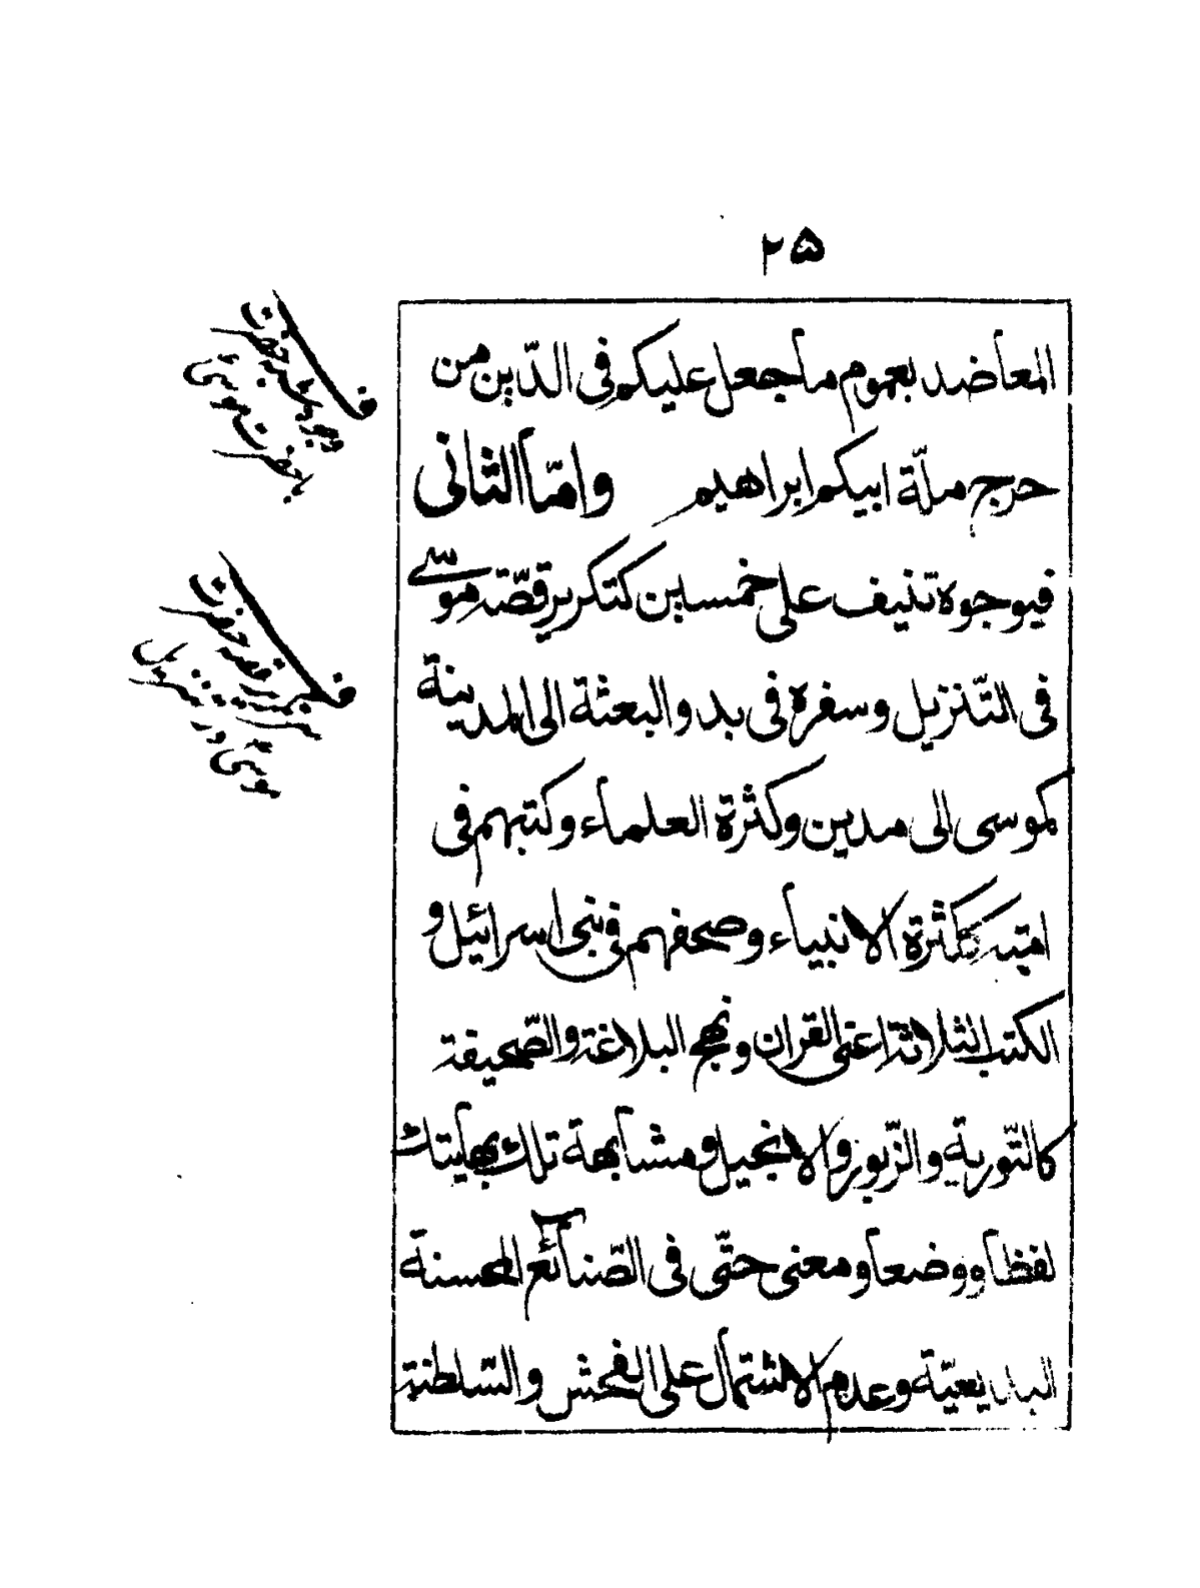 ٢٥
المعاضد بعموم ما جعل عليكم فى الدّين من
حرج ملّة ابيكم ابراهيم وامّا الثانى
فبوجوه تنيف على خمسين كتكرير قصّة موسى
فى التّنزيل وسفره فى بدو البعثة الى المدينة
كموسى الى مدين وكثرة العلماء وكتبهم فى
امّته ككثرة الانبياء وصحفهم فى بنى اسرائيل و
الكتب الثلاثة اعنى القران ونهج البلاغة والصّحيفة
كالتّورية والزّبور والانجيل ومشابهة تلك بهاتيك
لفظا ووضعا ومعنى حتّى فى الصّنائع المحسنة
البديعيّة وعدم الاشتمال على الفحش والسّلطنة
وجوه شبه حضرت
با حضرت موسى
تكرير قصه حضرت
موسى در تنزيل